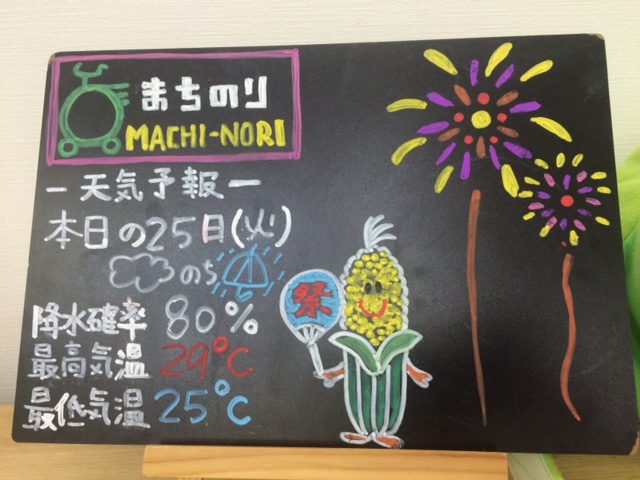 まちのり
MACHI-NORI
－天気予報－
本日の25日(火)
のち
降水確率 80%
最高気温 29℃
最低気温 25℃
祭